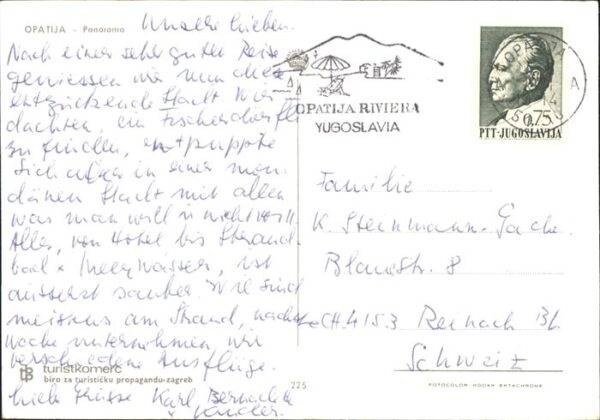 OPATIJA - Panorama
Unsere Lieben.
Nach einer sehr guten Reise
geniessen wir nun diese
entzückende Stadt. Wir
dachten, ein Fischerdörfli
zu finden, entpuppte
sich aber in einer mon-
dänen Stadt mit allem
was man will u nicht will.
Alles, von Hotel bis Strand-
bad & Meerwasser, ist
äusserst sauber. Wir sind
meistens am Strand, nächste
Woche unternehmen wir
verschiedene Ausflüge.
Viele Grüsse Karl Bernadette
turistkomerc
biro za turističku propagandu-zagreb
225
OPATIJA RIVIERA
YUGOSLAVIA
OPATIJA
A
0.75
PTT-JUGOSLAVIJA
Familie
K. Steinmann-
8
CH.4153 Reinach BL
Schweiz
FOTOCOLOR KODAK EKTACHROME